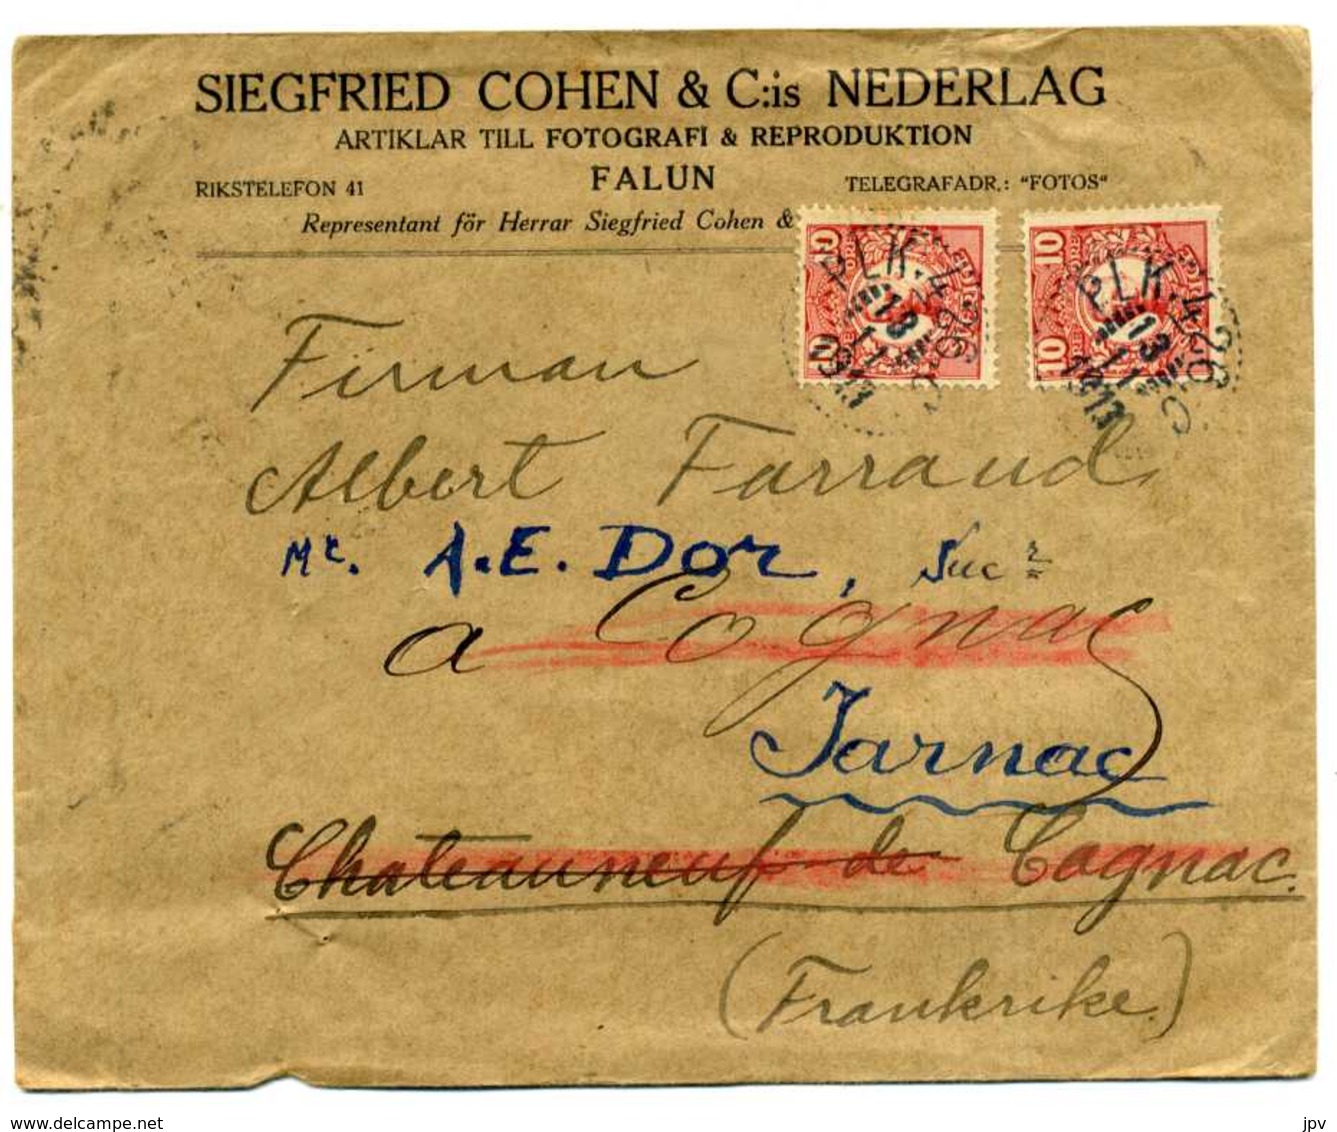 SIEGFRIED COHEN & C:is NEDERLAG
ARTIKLAR TILL FOTOGRAFI & REPRODUKTION
RIKSTELEFON 41 FALUN TELEGRAFADR.: "FOTOS"
Representant för Herrar Siegfried Cohen &
10 10
ÖRE ÖRE
PLK. 426 C
13
11
1913
PLK. 426 C
13
11
1913
Firman
Albert Farraud
Mr. A.E. Dor, Sucr
a Cognac
Jarnac
Chateauneuf-de Cognac.
(Frankrike.)
www.delcampe.net
jpv